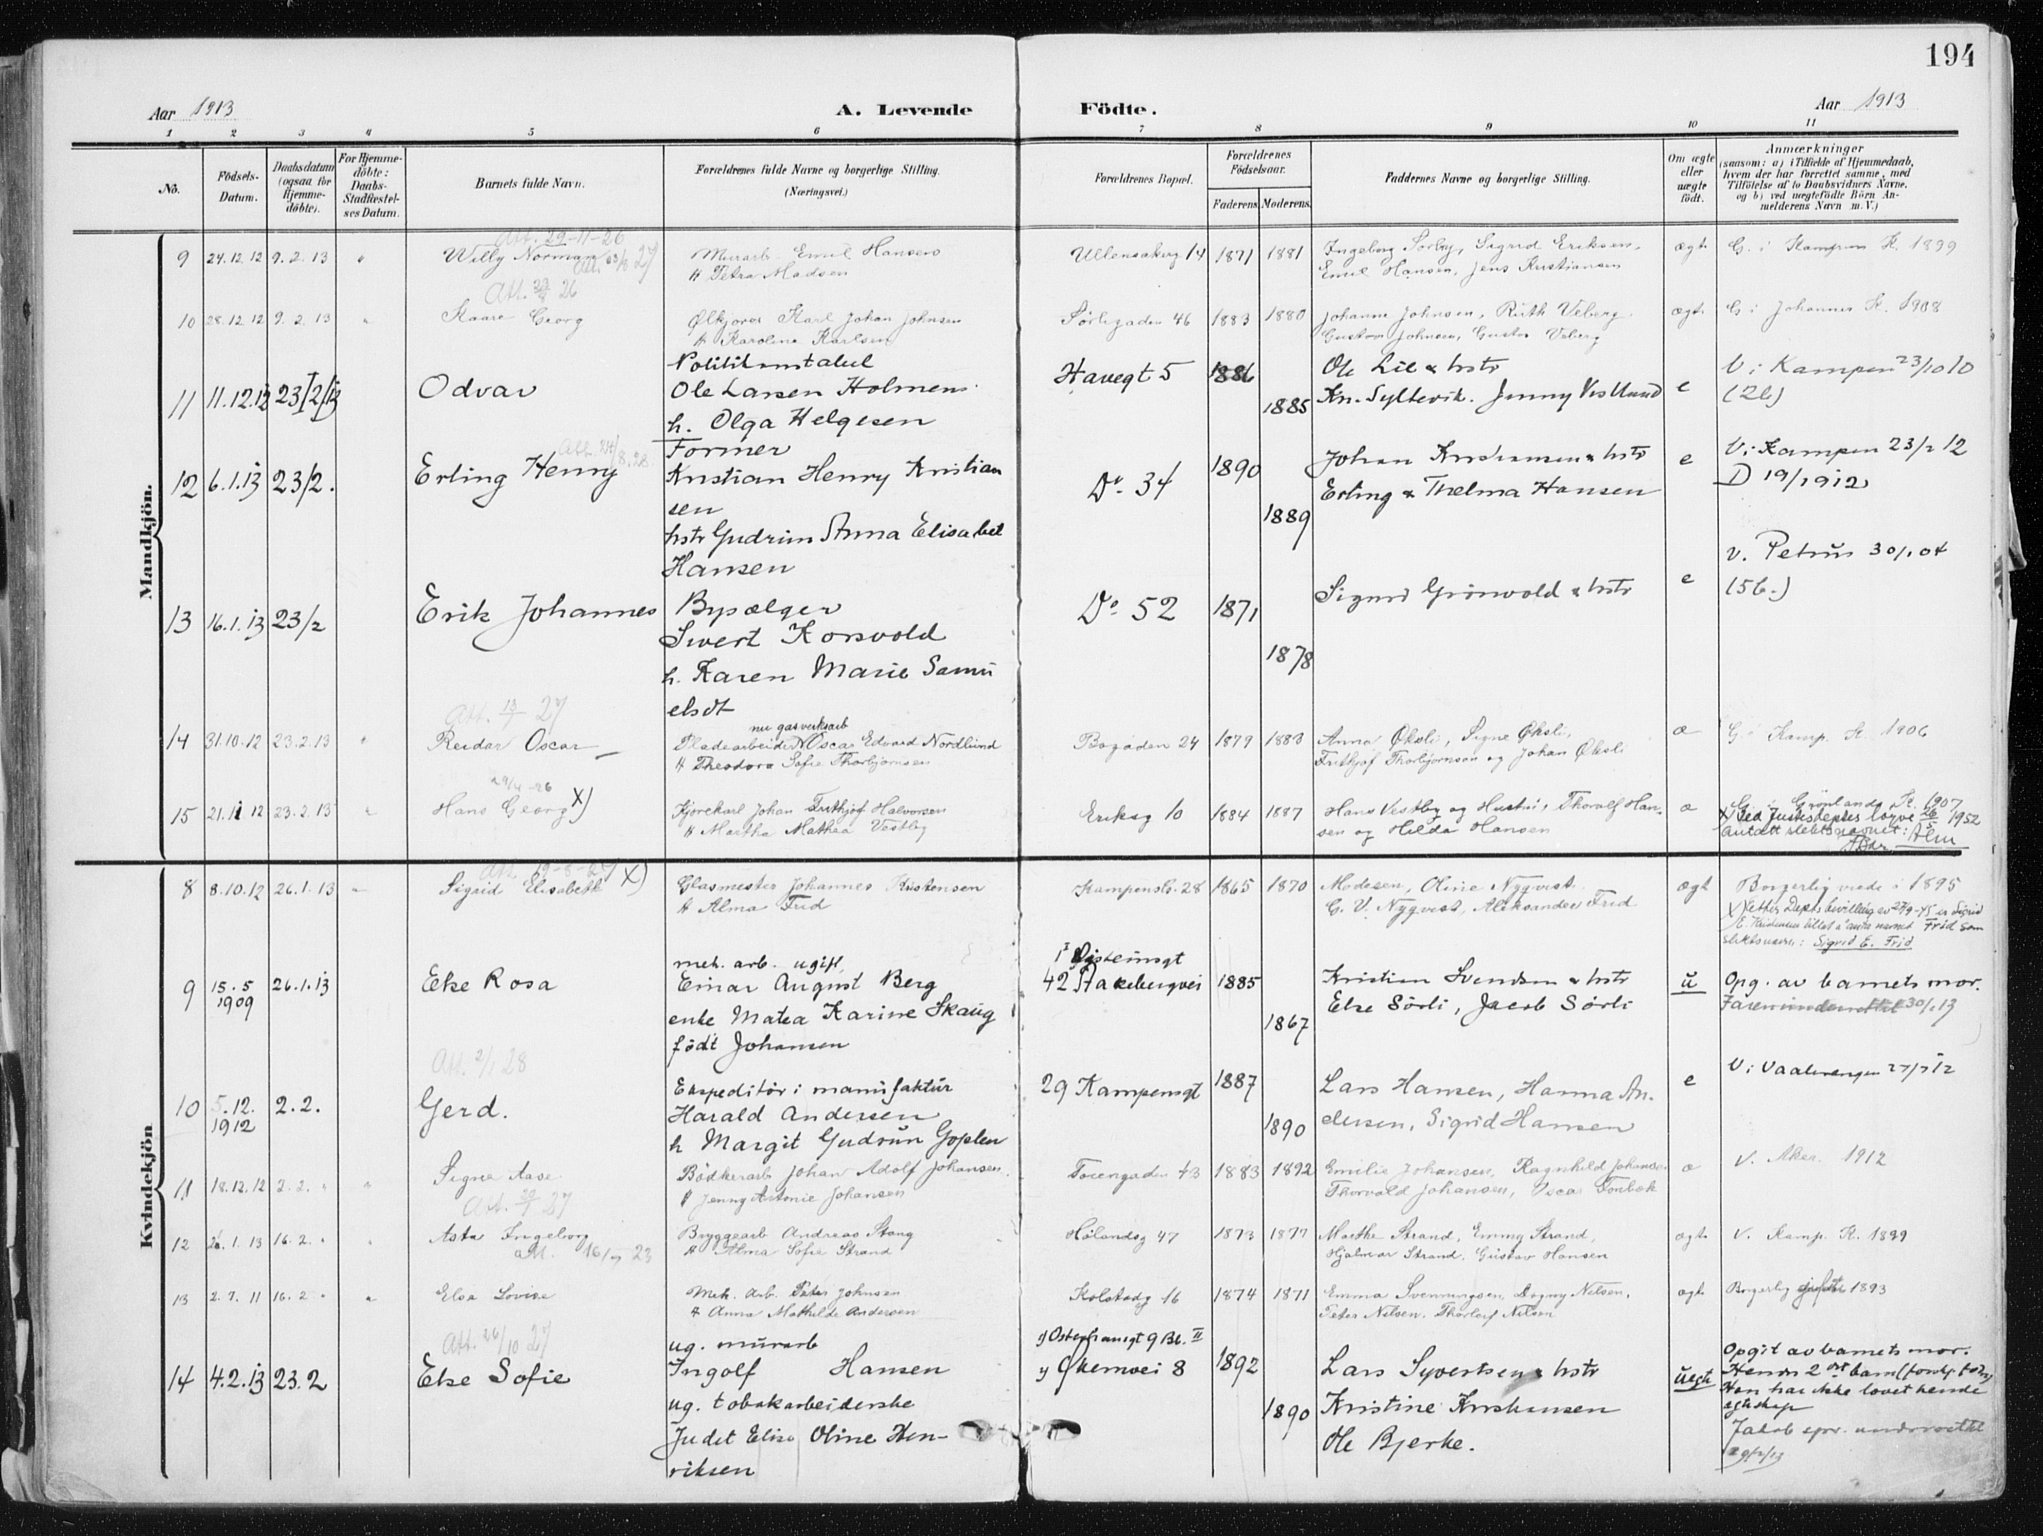 194
Aar 1913
A. Levende Födte.
Aar 1913
1 2 3 4 5 6 7 8 9 10 11
No. Födsels-Datum. Daabsdatum (ogsaa for Hjemme-döbte). For Hjemme-döbte: Daabs-Stadfæstelses Datum. Barnets fulde Navn. Forældrenes fulde Navne og borgerlige Stilling. (Næringsvei.) Forældrenes Bopæl. Forældrenes Födselsaar. Faderens. Moderens. Faddernes Navne og borgerlige Stilling. Om ægte eller uægte födt. Anmærkninger (saasom: a) i Tilfælde af Hjemmedaab, hvem der har forrettet samme, med Tilföielse af to Daabsvidners Navne, og b) ved uægtefödte Börn Anmelderens Navn m. V.)
Mandkjön.
Att. 29-11-26
9 24.12.12 9.2.13 " Willy Norman Murarb Emil Hansen Ullensakerg 14 1871 1881 Ingeborg Sørby, Sigrid Eriksen, ægt G. i Kampen K. 1899
H Petra Madsen Emil Hansen, Jens Kristiansen
Att. 26
10 28.12.12 9.2.13 " Kaare Georg Ølkjører Karl Johan Johnsen Sørligaden 46 1883 1880 Johanne Johnsen, Ruth Veberg ægt G. i Johannes K. 1908
H Karoline Karlsen Gustav Johnsen, Gustav Veberg
Politikonstabel
11 11.12.12 23/2/13 Odvar Ole Larsen Holmen Havegt 5 1886 1885 Ole Lie & hstr e V. i Kampen 23/10 10
h. Olga Helgesen Kn. Syltevik. Jenny Vestlund (2b)
Former
12 6.1.13 23/2. Erling Henry Kristian Henry Kristian Do. 34 1890 1889 Johan Kristiansen & hstr e V. i Kampen 23/2 12
sen Erling & Thelma Hansen D 19/1 912
hstr Gudrun Anna Elisabet
Hansen
13 16.1.13 23/2 Erik Johannes Bysælger Do. 52 1871 1878 Sigurd Grönvold & hstr e V. Petrus 30/1 04
Sivert Korsvold (5b.)
h. Karen Marie Samu
elsdt
Att. 13/7 27
nu gasverksarb
14 31.10.12 23.2.13 " Reidar Oscar Pladearbeider Oscar Edvard Nordlund Bogaden 24 1879 1883 Anna Øksli, Signe Øksli, æ G. i Kamp. K. 1906
H Theodora Sofie Thorbjørnsen Frithjof Thorbjornsen og Johan Øksli
29/4-26
15 21.11.12 23.2.13 " Hans Georg X) Kjørekarl Johan Frithjof Halvorsen Eriksg 10 1884 1887 Hans Vestby og Hustru, Thorolf Han- æ G. i Grønlands K. 1907
H Martha Mathea Vestby sen og Hilda Hansen X) Ved Justisdeptes løyve 26/5 1952
antatt slektsnavnet: Alm
Kvindekjön
8 8.10.12 26.1.13 " Sigrid Elisabeth X) Glasmester Johannes Kristensen Kampensg. 28 1865 1870 Madsen, Oline Nyqvist. ægt Borgerlig viede i 1895
H Alma Frid G. V. Nyqvist, Aleksander Frid X) Etter Depts bevilling av 27/9-45 er Sigrid
E. Kristensen tillat å anta navnet Frid som
slektsnavn: Sigrid E. Frid
meh. arb. ugift
9 15.5 1909 26.1.13 Else Rosa Einar August Berg 42 Stakebergvei 1885 1867 Kristian Svendsen & hstr u Opg. av barnets mor.
enke Matea Karine Skaug Else Sörli, Jacob Sörli
födt Johansen
Att. 2/1 28
Ekspeditör i manufaktur
10 5.12. 1912 2.2. Gerd. Harald Andersen 29 Kampensgt 1887 1890 Lars Hansen, Hanna An- e V. i Vaalerengen
h Margit Gudrun Goplen dersen, Sigrid Hansen
11 18.12.12 2.2. " " Signe Aase Bödkerarb Johan Adolf Johansen Toiengaden 43 1883 1892 Emilie Johansen, Ragnhild Johansen æ V. Aker. 1912
Att. 27 H Jenny Antonie Johansen Thorvald Johansen, Oscar
12 26.1.13 16.2. " Asta Ingeborg Bryggearb Andreas Stang Hølandsg 47 1873 1877 Marthe Strand, Emmy Strand, ægt V. Kamp. K. 1899
att. 16/5 23 H Alma Sofie Strand Hjalmar Strand. Gustav Hansen
13 2.7.11 16.2 " " Elsa Lovise Mek. Arb. Peter Johnsen Kolstadg 16 1874 1871 Emma Svenningsen, Dagny Nilsen, ægt Borgerlig 1893
H Anna Mathilde Andersen Peter Nilsen. Thorleif Nilsen
Att. 26/10 27
ug. murarb
14 4.2.13 23.2 Else Sofie Ingolf Hansen Økernvei 8 1892 1890 Lars Syvertsen & hstr uegte Opgit av barnets mor.
ug. tobakarbeiderske Kristine Kristiansen Hendes 2det barn
Judit Elise Oline Hen- Ole Bjerke. Han har ikke lovet hende
riksen ægteskap